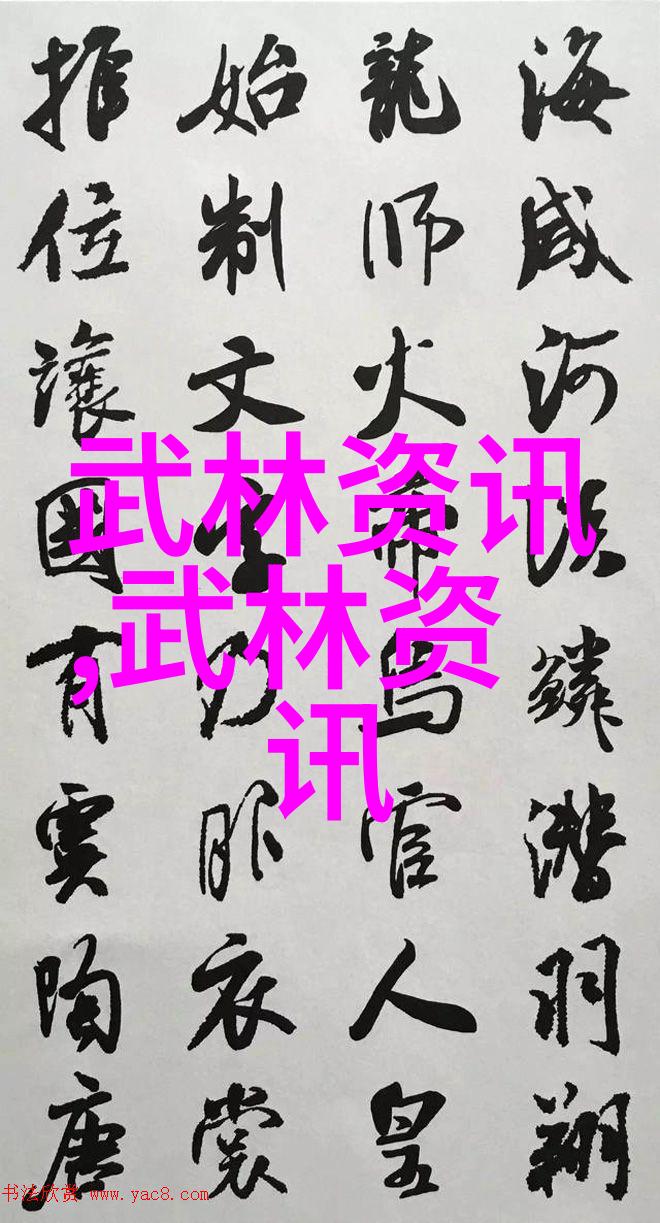 海咸河淡鱗潛羽翔
龍師火帝鳥官人皇
始制文字乃服衣裳
推位讓國有虞陶唐
武林资讯
,武林资
讯
书法欣赏 www.yac8.com